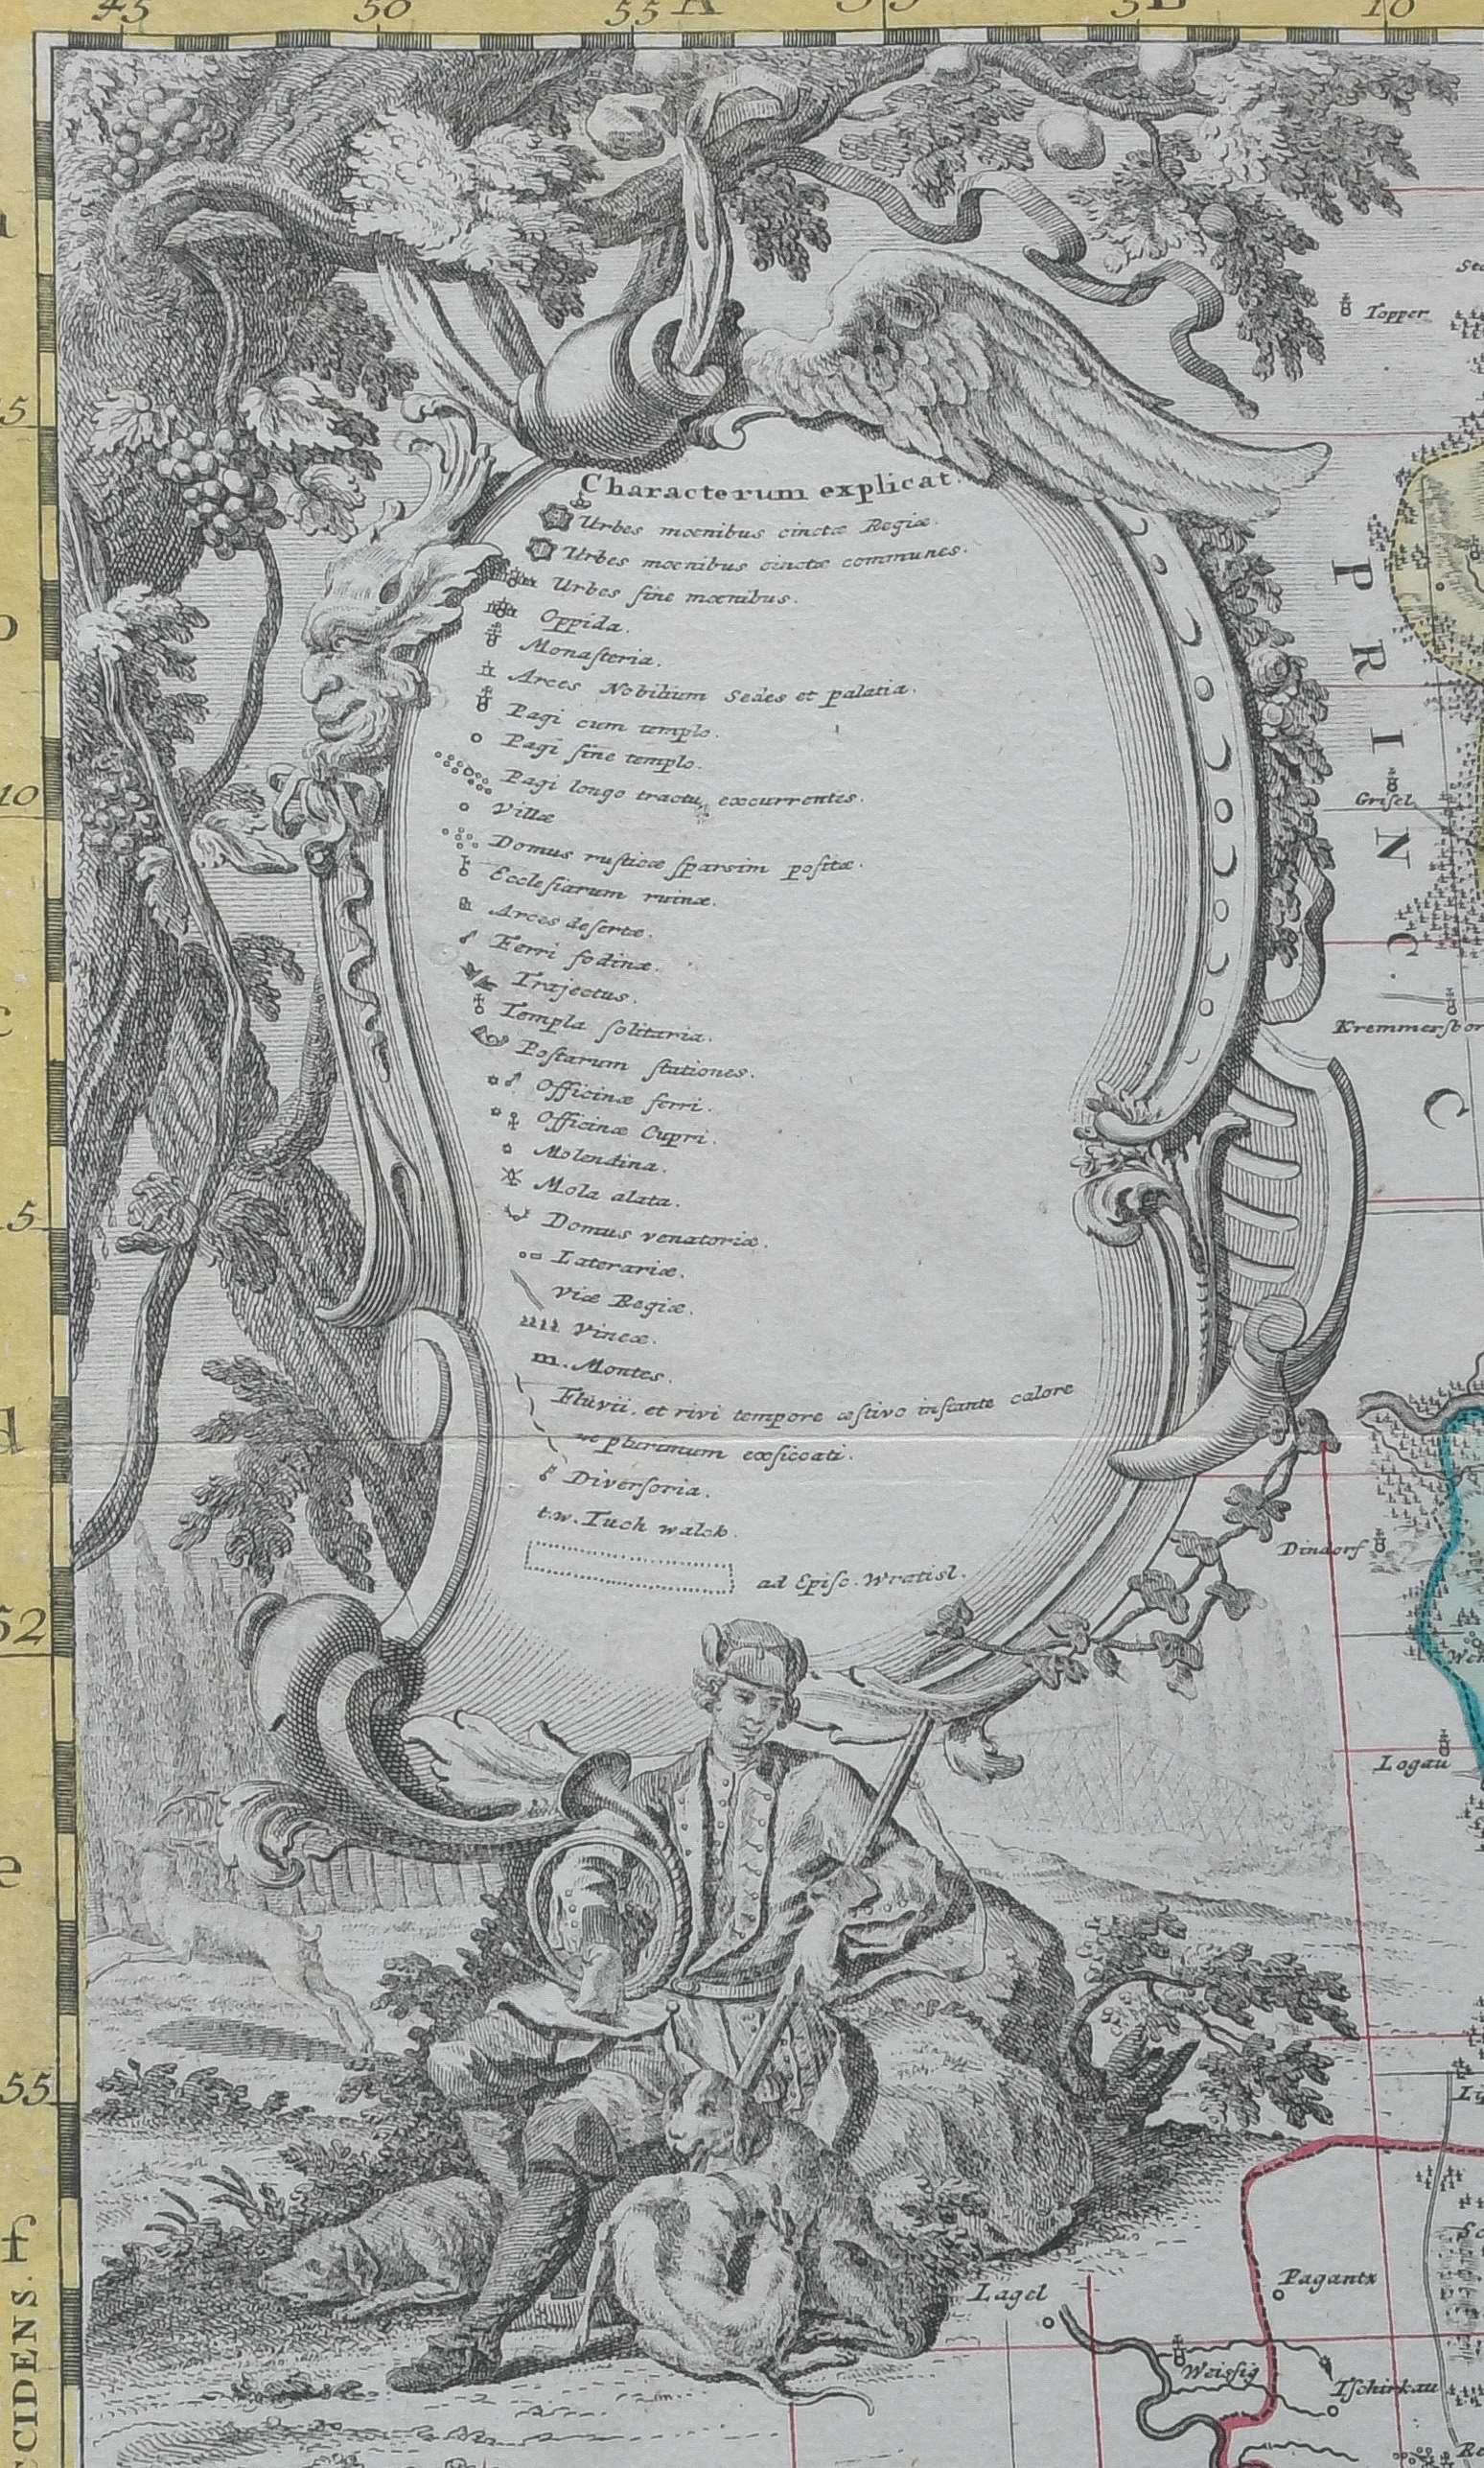 45 50 55 A 55 5 B 10
Characterum explicat.
Urbes mœnibus cinctæ Regiæ.
Urbes mœnibus cinctæ communes.
Urbes ſine mœnibus.
Oppida.
Monaſteria.
Arces Nobilium Sedes et palatia.
Pagi cum templo.
Pagi ſine templo.
Pagi longo tractu excurrentes.
Villæ
Domus ruſticæ ſparsim poſitæ.
Eccleſiarum ruinæ.
Arces deſertæ.
Ferri fodinæ.
Trajectus.
Templa ſolitaria.
Poſtarum ſtationes.
Officinæ ferri.
Officinæ Cupri.
Molendina.
Mola alata.
Domus venatoriæ.
Laterariæ.
Viæ Regiæ.
Vineæ.
m. Montes.
Fluvii, et rivi tempore æſtivo inſtante calore
plurimum exſiccati.
Diverſoria.
t.w. Tuch walck.
ad Epiſc. Wratisl.
Topper
PRINC.
Griſel
C
Dindorf
Logau
Lagel
Pagantx
Weiſsig
Tſchirkau
5
10
c
5
d
52
e
55
f